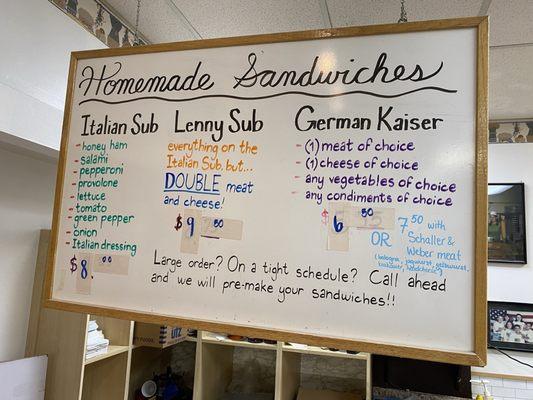 Homemade Sandwiches
Italian Sub
- honey ham
- salami
- pepperoni
- provolone
- lettuce
- tomato
- green pepper
- onion
- Italian dressing
$8.00
Lenny Sub
everything on the
Italian Sub, but...
DOUBLE meat
and cheese!
$9.50
German Kaiser
- (1) meat of choice
- (1) cheese of choice
- any vegetables of choice
- any condiments of choice
$6.50
OR
7.50 with
Schaller &
Weber meat
Large order? On a tight schedule? Call ahead
and we will pre-make your sandwiches!!
UTZ